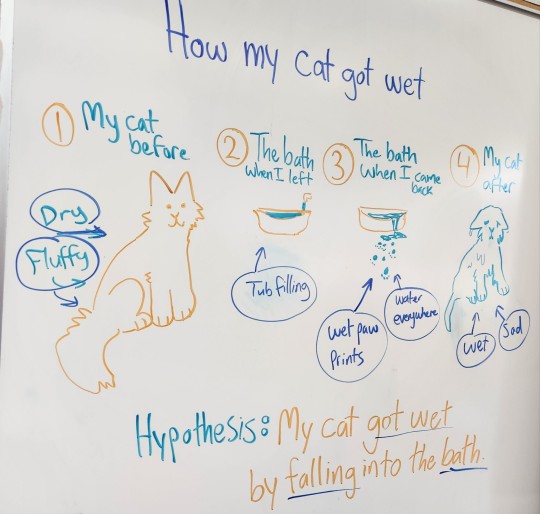 How my cat got wet
1 My cat
before
Dry
Fluffy
2 The bath
when I left
Tub filling
3 The bath
when I came
back
wet paw
prints
water
everywhere
4 My cat
after
wet
Sad
Hypothesis: My cat got wet
by falling into the bath.